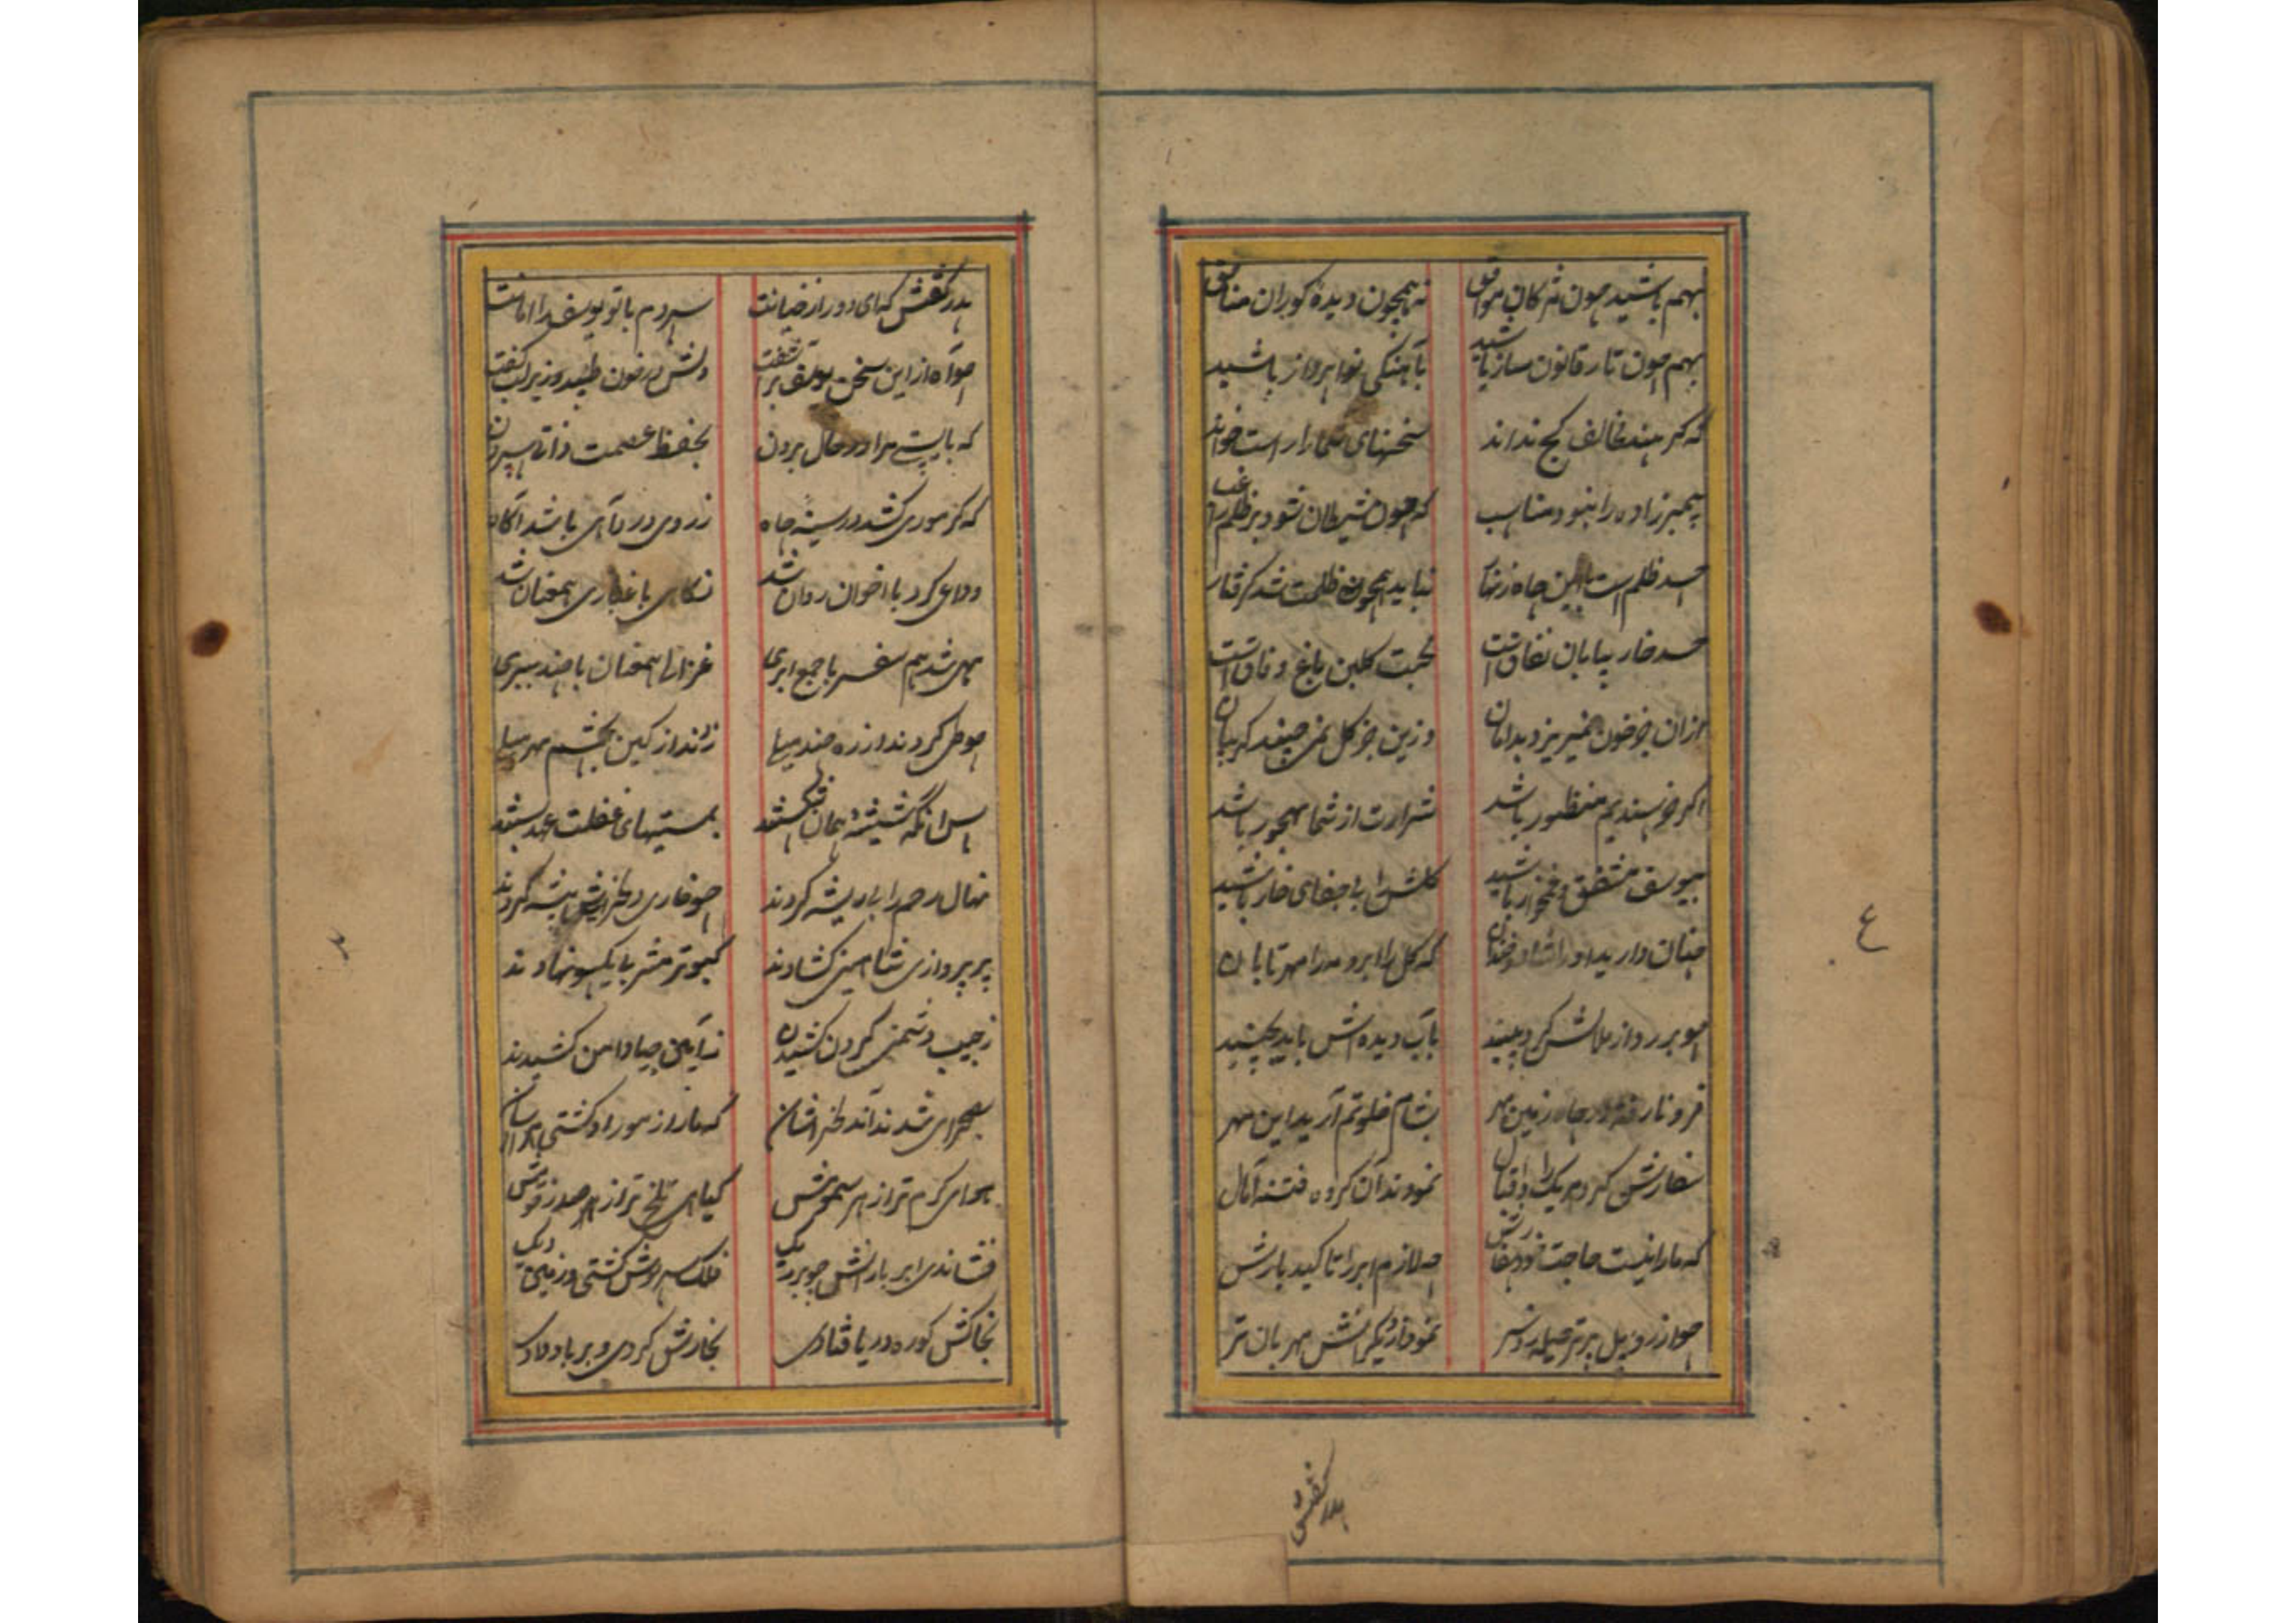 بهم باشید چون مژکان موافق نه همچون دیدهٔ کوران منافق
بهم چون تار قانون ساز باشید بآهنکی نوا پرداز باشید
که کر بیند مخالف کج نداند سخنهای شما را راست خواند
پیمبر زاده را نبود مناسب که چون شیطان شود بر ظلم راغب
حسد ظلم است این چاه زنهار نباید همچون ظلمت شد کرفتار
حسد خار بیابان نفاق است محبت کلبن باغ وفاق است
ازان جز خون نمیریزد بدامان وزین جز کل نمی چیند کریبان
اکر خرسندیم منظور باشد شرارت از شما مهجور باشد
بیوسف مشفق و غمخوار باشید کلش را بی جفای خار باشید
چنان دارید او را شاد و خندان که کل را ابر و مه را مهر تابان
چو بر رو از ملالش کرد بینید بآب دیده اش باید بچینید
فرو نارفته در چاه زمین مهر بشام خلوتم آرید این مهر
سفارش کرد هر یک را باقبال نمودند آن کروه فتنه آمال
که ما را نیست حاجت خود سفارش چه لازم ابر را تاکید بارش
چو از روبیل برتر حیله رو نمود از دیکرانش مهربان تر
پدر کفتش
پدر کفتش که ای دور از خیانت سپردم با تو یوسف را امانت
چو آه از این سخن یوسف برآشفت دلش در خون طپید و زیر لب کفت
که بایستی مرا در حال بردن بحفظ عصمت ذاتی سپردن
که کر موری کشد در سینه چاه ز روی درد آهی باشد آکاه
وداعی کرد با اخوان روان شد نکاری با غباری همعنان شد
مهی شد هم سفر با جمع ابری غزالی همعنان با چند ببری
چو طی کردند از ره چند میلی زدند از کین بچشم مهر میلی
پس آنکه شیشهٔ پیمان شکستند بمستیهای غفلت عهد بستند
نهال رحم را بی ریشه کردند چو خاری دلخراشی پیشه کردند
پر پروازی شاهین کشادند کبوتر مشربا یکسو نهادند
ز جیب دشمنی کردن کشیدند ز آیین حیا دامن کشیدند
بصحرای شدند آن دلخراشان که مار از مور او کشتی هراسان
هوای کرم تر از هر سمومش کیاهی تلخ تر از هر صد زقومش
فشاندی ابر بارانش چو بر ریک فلک سرپوش کشتی و زمین دیک
بخاکش کوره دریا فتادی بخارش کردی و بر باد دادی